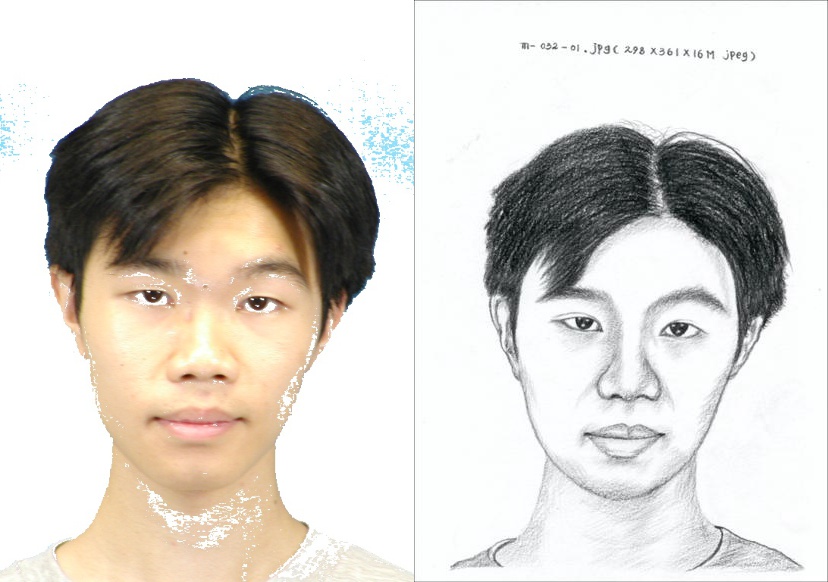 m-032-01.jpg( 298 X361X16M jpeg)